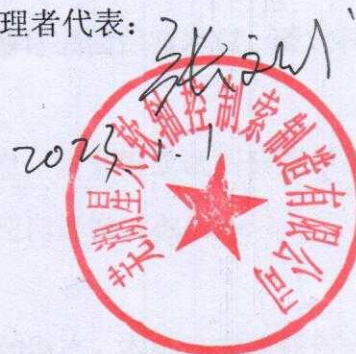 理者代表：
2023.1.1
芜湖星火软轴控制索制造有限公司